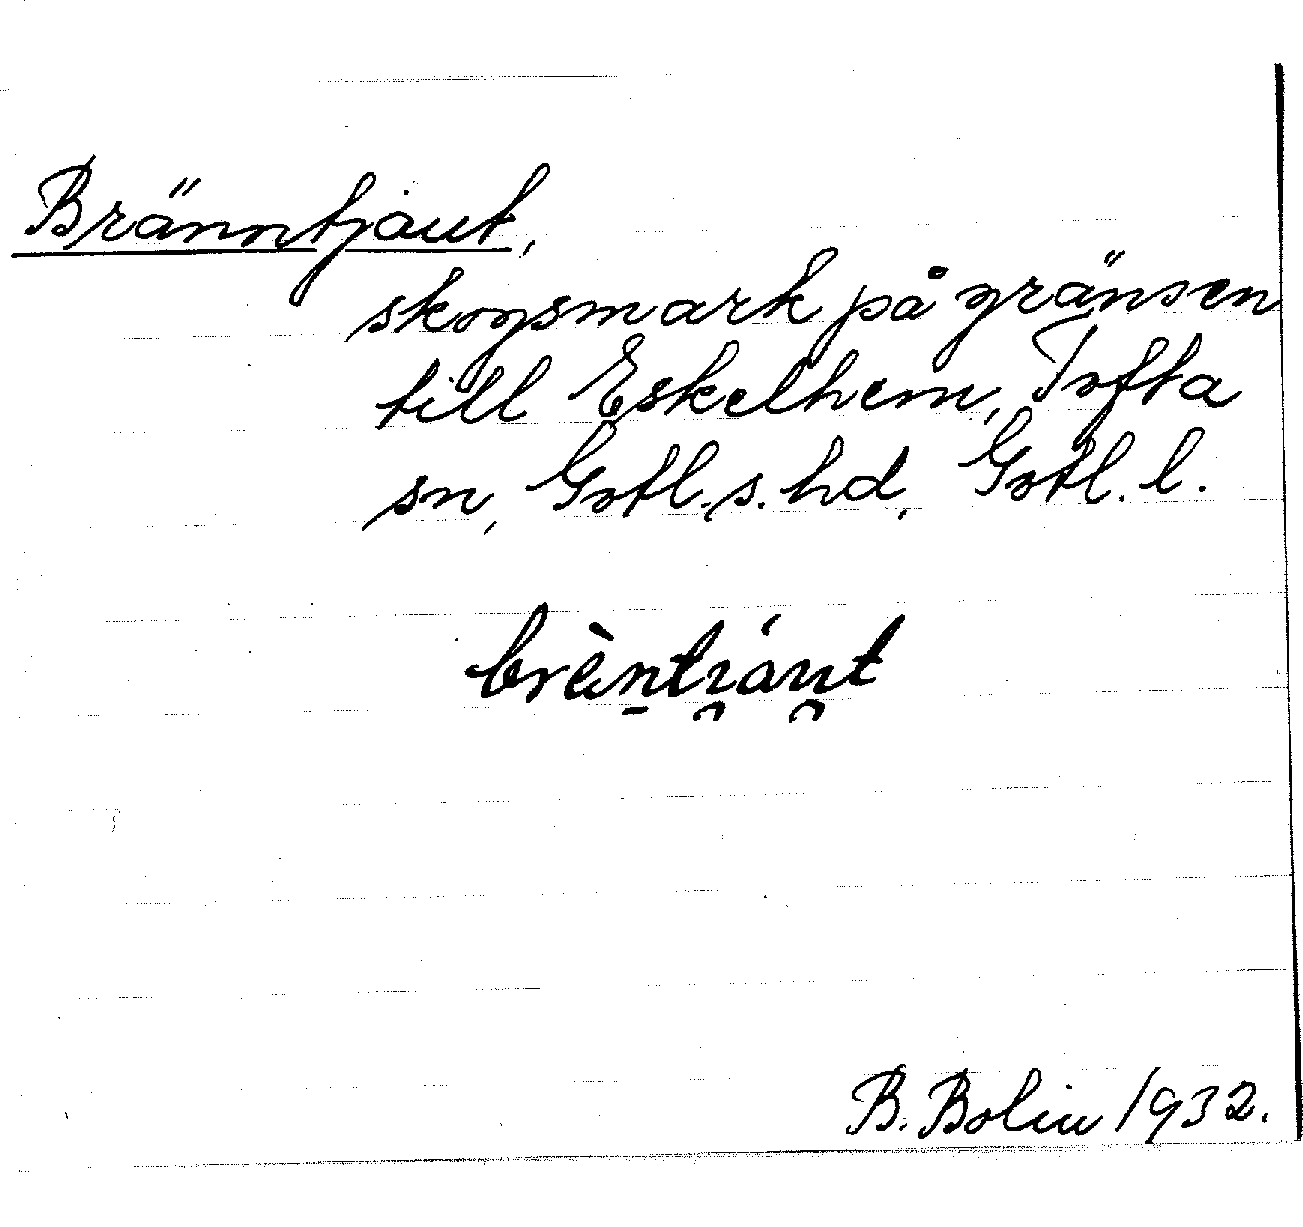 Bränntjaut,
skogsmark på gränsen
till Eskelhem, Tofta
sn, Gotl. s. hd, Gotl. l.
brèn̠ti̯áu̯t
B. Bolin 1932.